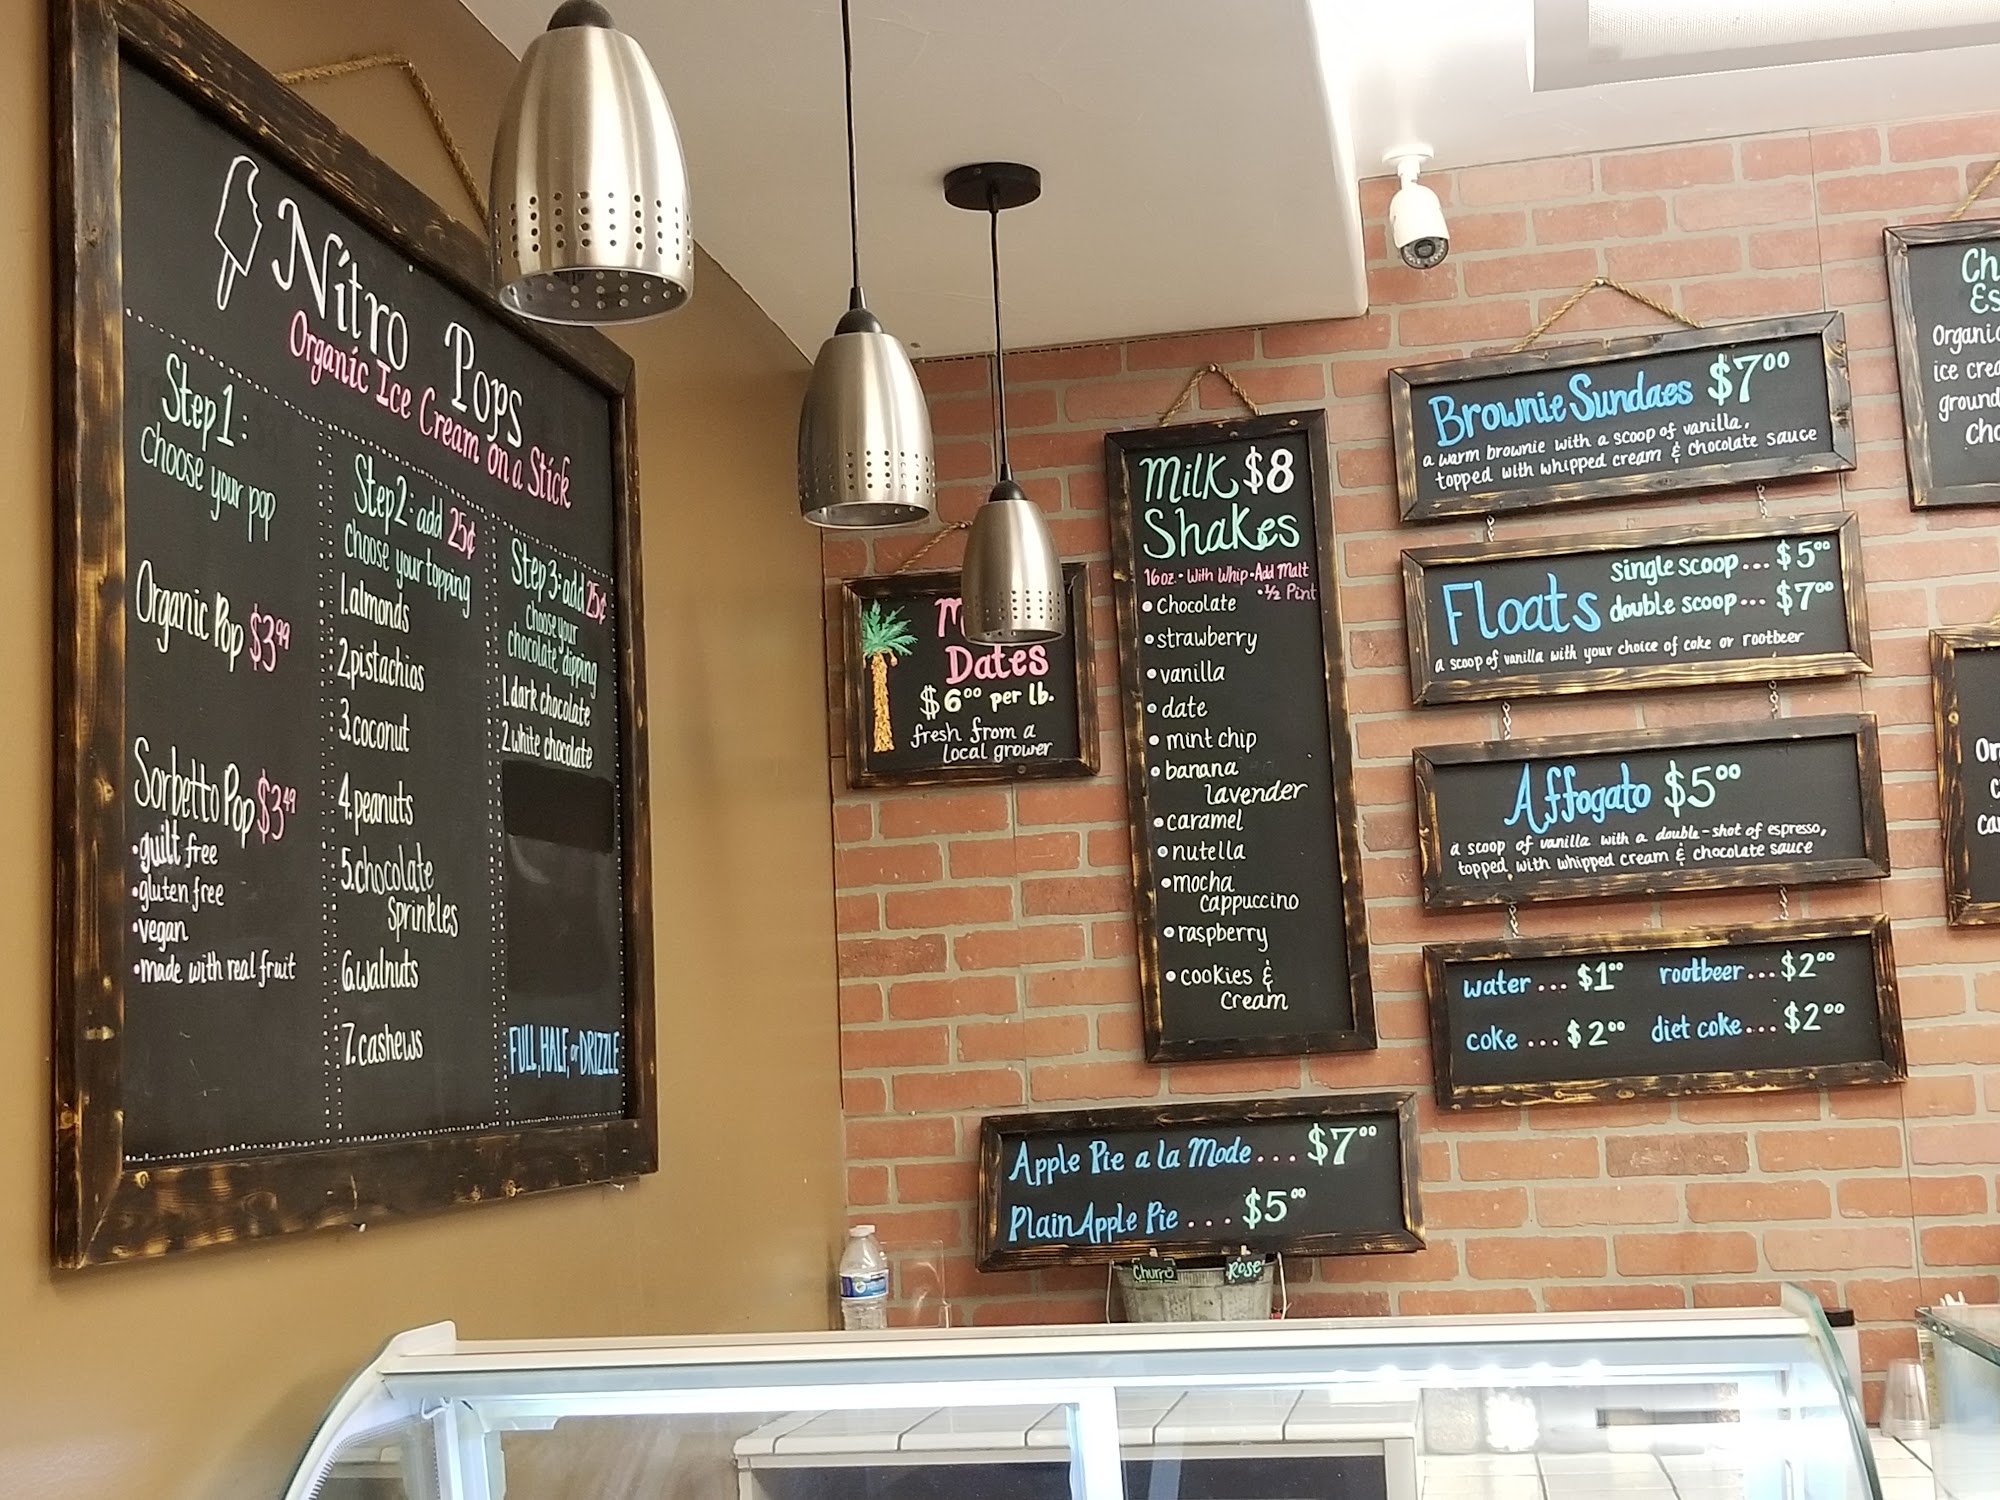 Nitro Pops
Organic Ice Cream on a Stick
Step 1:
choose your pop
Organic Pop $3.99
Sorbetto Pop $3.49
•guilt free
•gluten free
•vegan
•made with real fruit
Step 2: add 25¢
choose your topping
1.almonds
2.pistachios
3.coconut
4.peanuts
5.chocolate
Sprinkles
6.walnuts
7.cashews
Step 3: add 25¢
choose your
chocolate dipping
1.dark chocolate
2.white chocolate
FULL, HALF, or DRIZZLE
Dates
$6.00 per lb.
fresh from a
local grower
Milk $8
Shakes
16oz. • With Whip • Add Malt
• ½ Pint
• Chocolate
• strawberry
• vanilla
• date
• mint chip
• banana
lavender
• caramel
• nutella
• mocha
cappuccino
• raspberry
• cookies &
cream
Brownie Sundaes $7.00
a warm brownie with a scoop of vanilla,
topped with whipped cream & chocolate sauce
Floats
single scoop... $5.00
double scoop... $7.00
a scoop of vanilla with your choice of coke or rootbeer
Affogato $5.00
a scoop of vanilla with a double-shot of espresso,
topped with whipped cream & chocolate sauce
water ... $1.00 rootbeer ... $2.00
coke ... $2.00 diet coke ... $2.00
Apple Pie a la Mode.... $7.00
Plain Apple Pie .... $5.00
Churro
Rose
Organic
ground